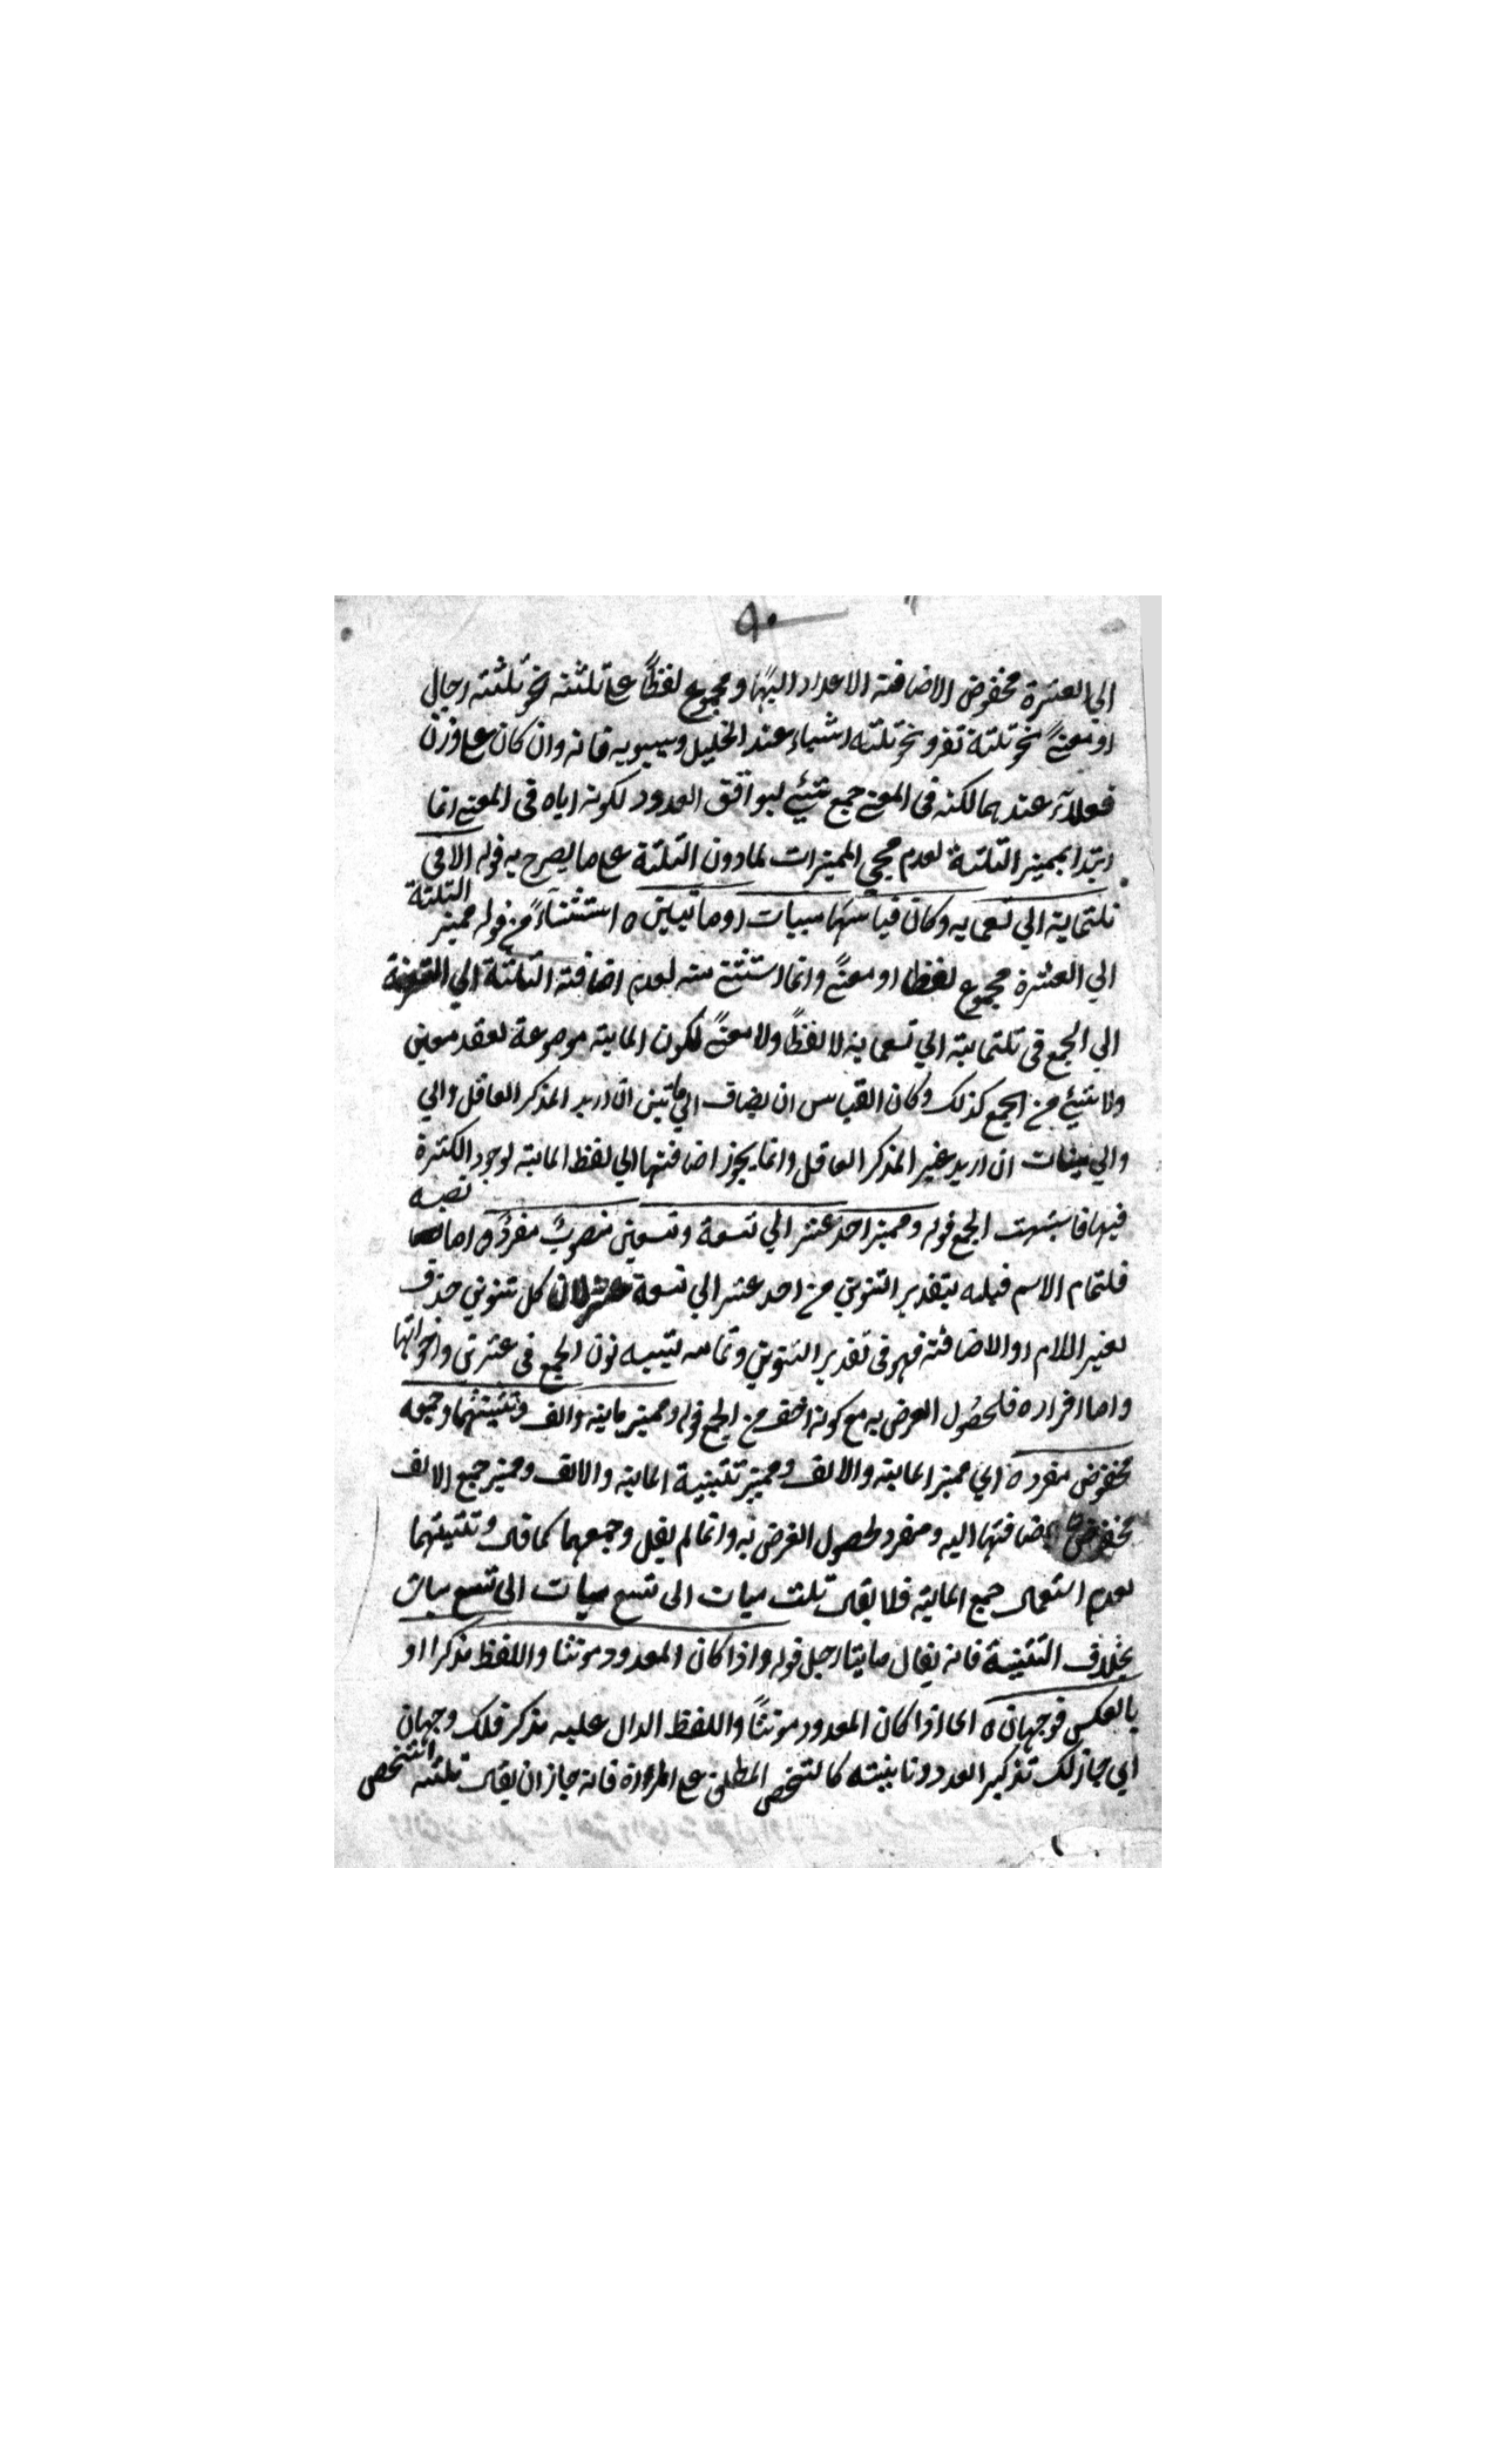 ٩٠
الي العشرة مخفوض الاضافته الاعداد اليها ومجموع لفظاً علي ثلثته نحو ثلثته رجال
او معنىً نحو ثلثة نفر ونحو ثلثته اشياء عند الخليل وسيبويه فانه وان كان علي وزن
فعلاء عندهما لكنه في المعنى جمع شيئ ليوافق العدود لكونه اياه في المعنى انما
ابتدا بمميز الثلثة لعدم مجي المميزات لما دون الثلثة علي ما يصرح به قوله الا في
ثلثماية الي تسعمايه وكان قياسها مييات او ما ئيين ٥ استثناءً من قوله مميز الثلثة
الي العشرة مجموع لفظا او معنىً وانما استثنى منه لعدم اضافته الثلثة الي
الي الجمع في ثلثمايته الي تسعماينه لا لفظاً ولا معنىً لكون المايته موصوعة لعقد معين
ولا شيئ من الجمع كذلك وكان القياس ان يضاف الي مائين ان اريد المذكر العاقل والي
والي ميئات ان اريد غير المذكر العاقل وانما يجوز اضافتها الي لفظ المايته لوجود الكثرة
فيها فاشبهت الجمع قوله ومميز احد عشر الي تسعة وتسعين منصوبٌ مفردٌ ٥ اما نصبه
فلتمام الاسم قبله بتقدير التنوين من احد عشر الي تسعة عشر لان كل تنوين حذف
لغير اللام او الاضافته فهو في تقدير التنوين وتمامه تشبيه نون الجمع في عشرين واخواتها
واما افراده فلحصُول الغرض به مع كونه اخف من الجمع قوله ومميز مايته والف وتثنيتهما وجمعه
مخفوض مفرد ٥ اي مميز المايته والالف ومميز تثنية المايته والالف ومميز جمع الالف
مخفوض لاضافتها اليه ومفرد لحصول الغرض به وانما لم يقل وجمعهما كما قال وتثنيتهما
لعدم استعمال جمع المايته فلا يقال ثلث ميات الى تسع ميات الى تسع ميات
بخلاف التثنية فانه يقال مايتا رجل قوله واذا كان المعدود مونثا واللفظ مذكرا او
بالعكس فوجهان ٥ اى اذا كان المعدود مونثاً واللفظ الدال عليه مذكر فلك وجهان
اي جاز لك تذكير العدد وتانيثه كالشخص المطلق علي المراة فانه جاز ان يقال ثلثه اشخص